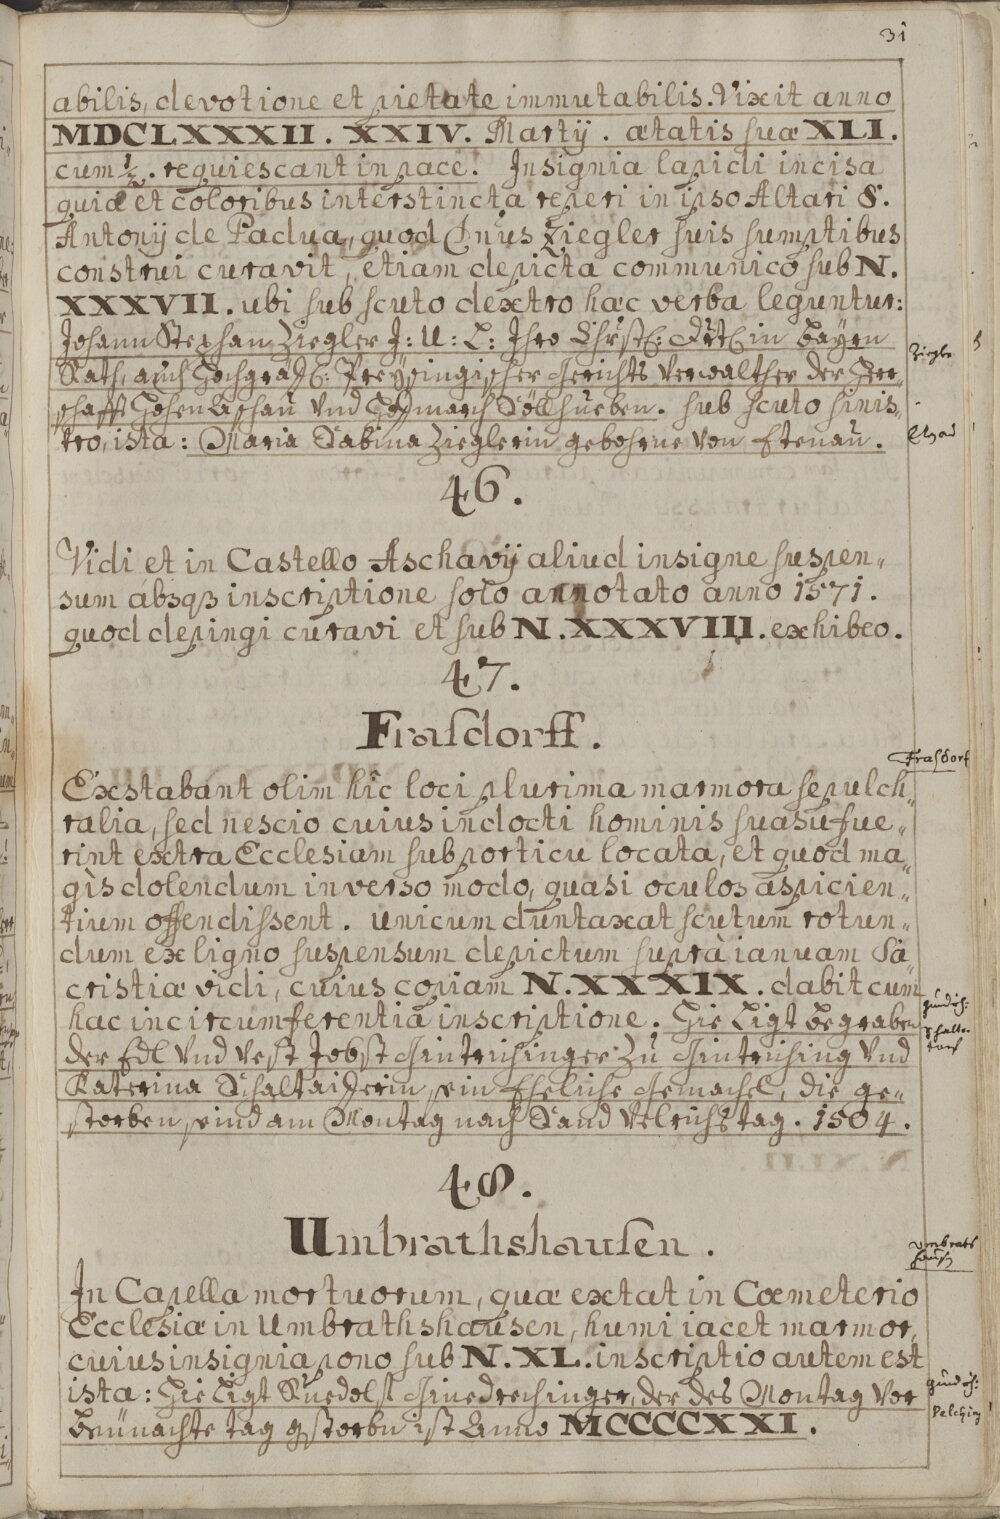 31
abilis, devotione et pietate immutabilis. Vixit anno
MDCLXXXII. XXIV. Martij. ætatis suæ XLI.
cum ½. requiescant in pace. Insignia lapidi incisa
quia et coloribus interstincta reperi in ipso Altari S.
Antonij de Padua, quod Dnus Ziegler suis sumptibus
construi curavit, etiam depicta communico sub N.
XXXVII. ubi sub scuto dextro hæc verba leguntur:
Johann Stephan Ziegler J: U: L: Ihro Chrfrtl: Drtl in Bayrn
Rath, auch Hochgräfl: Preysingischer Gerichts Verwalther der Herr„
schafft Hohen Aschau und Hofmarch Söllhueben. sub scuto sinis„
tro, ista: Maria Sabina Zieglerin gebohrne von Etenau.
Ziegler
46.
Vidi et in Castello Aschavij aliud insigne suspen„
sum absqz inscriptione solo annotato anno 1571.
quod depingi curavi et sub N. XXXVIII. exhibeo.
47.
Frasdorff.
Frasdorf
Exstabant olim hîc loci plurima marmora sepulch„
ralia, sed nescio cuius indocti hominis suasu fue„
rint extra Ecclesiam sub porticu locata, et quod ma„
gìs dolendum inverso modo, quasi oculos aspicien„
tium offendissent. unicum duntaxat scutum rotun„
dum ex ligno suspensum depictum suprà ianuam Sa„
cristiæ vidi, cuius copiam N. XXXIX. dabit cum
hac in circumferentia inscriptione. Hie Ligt begraben
der Edl und vest Jobst Gintrichinger zu Gintriching und
Katerina Schaltaiferin, sein Eheliche Gemachel, die ge„
storben, seind am Montag nach Sand Velrichs tag. 1504.
48.
Umbrathshausen.
Vmbrats
hausn
In Capella mortuorum, quæ extat in Cœmeterio
Ecclesiæ in Umbrathshausen, humi iacet marmor,
cuius insignia pono sub N. XL. inscriptio autem est
ista: Hie Ligt Ruedolf Gundrechinger, der des Montag vor
Gündrich:
Pelching
gstorbn ist Anno MCCCCXXI.